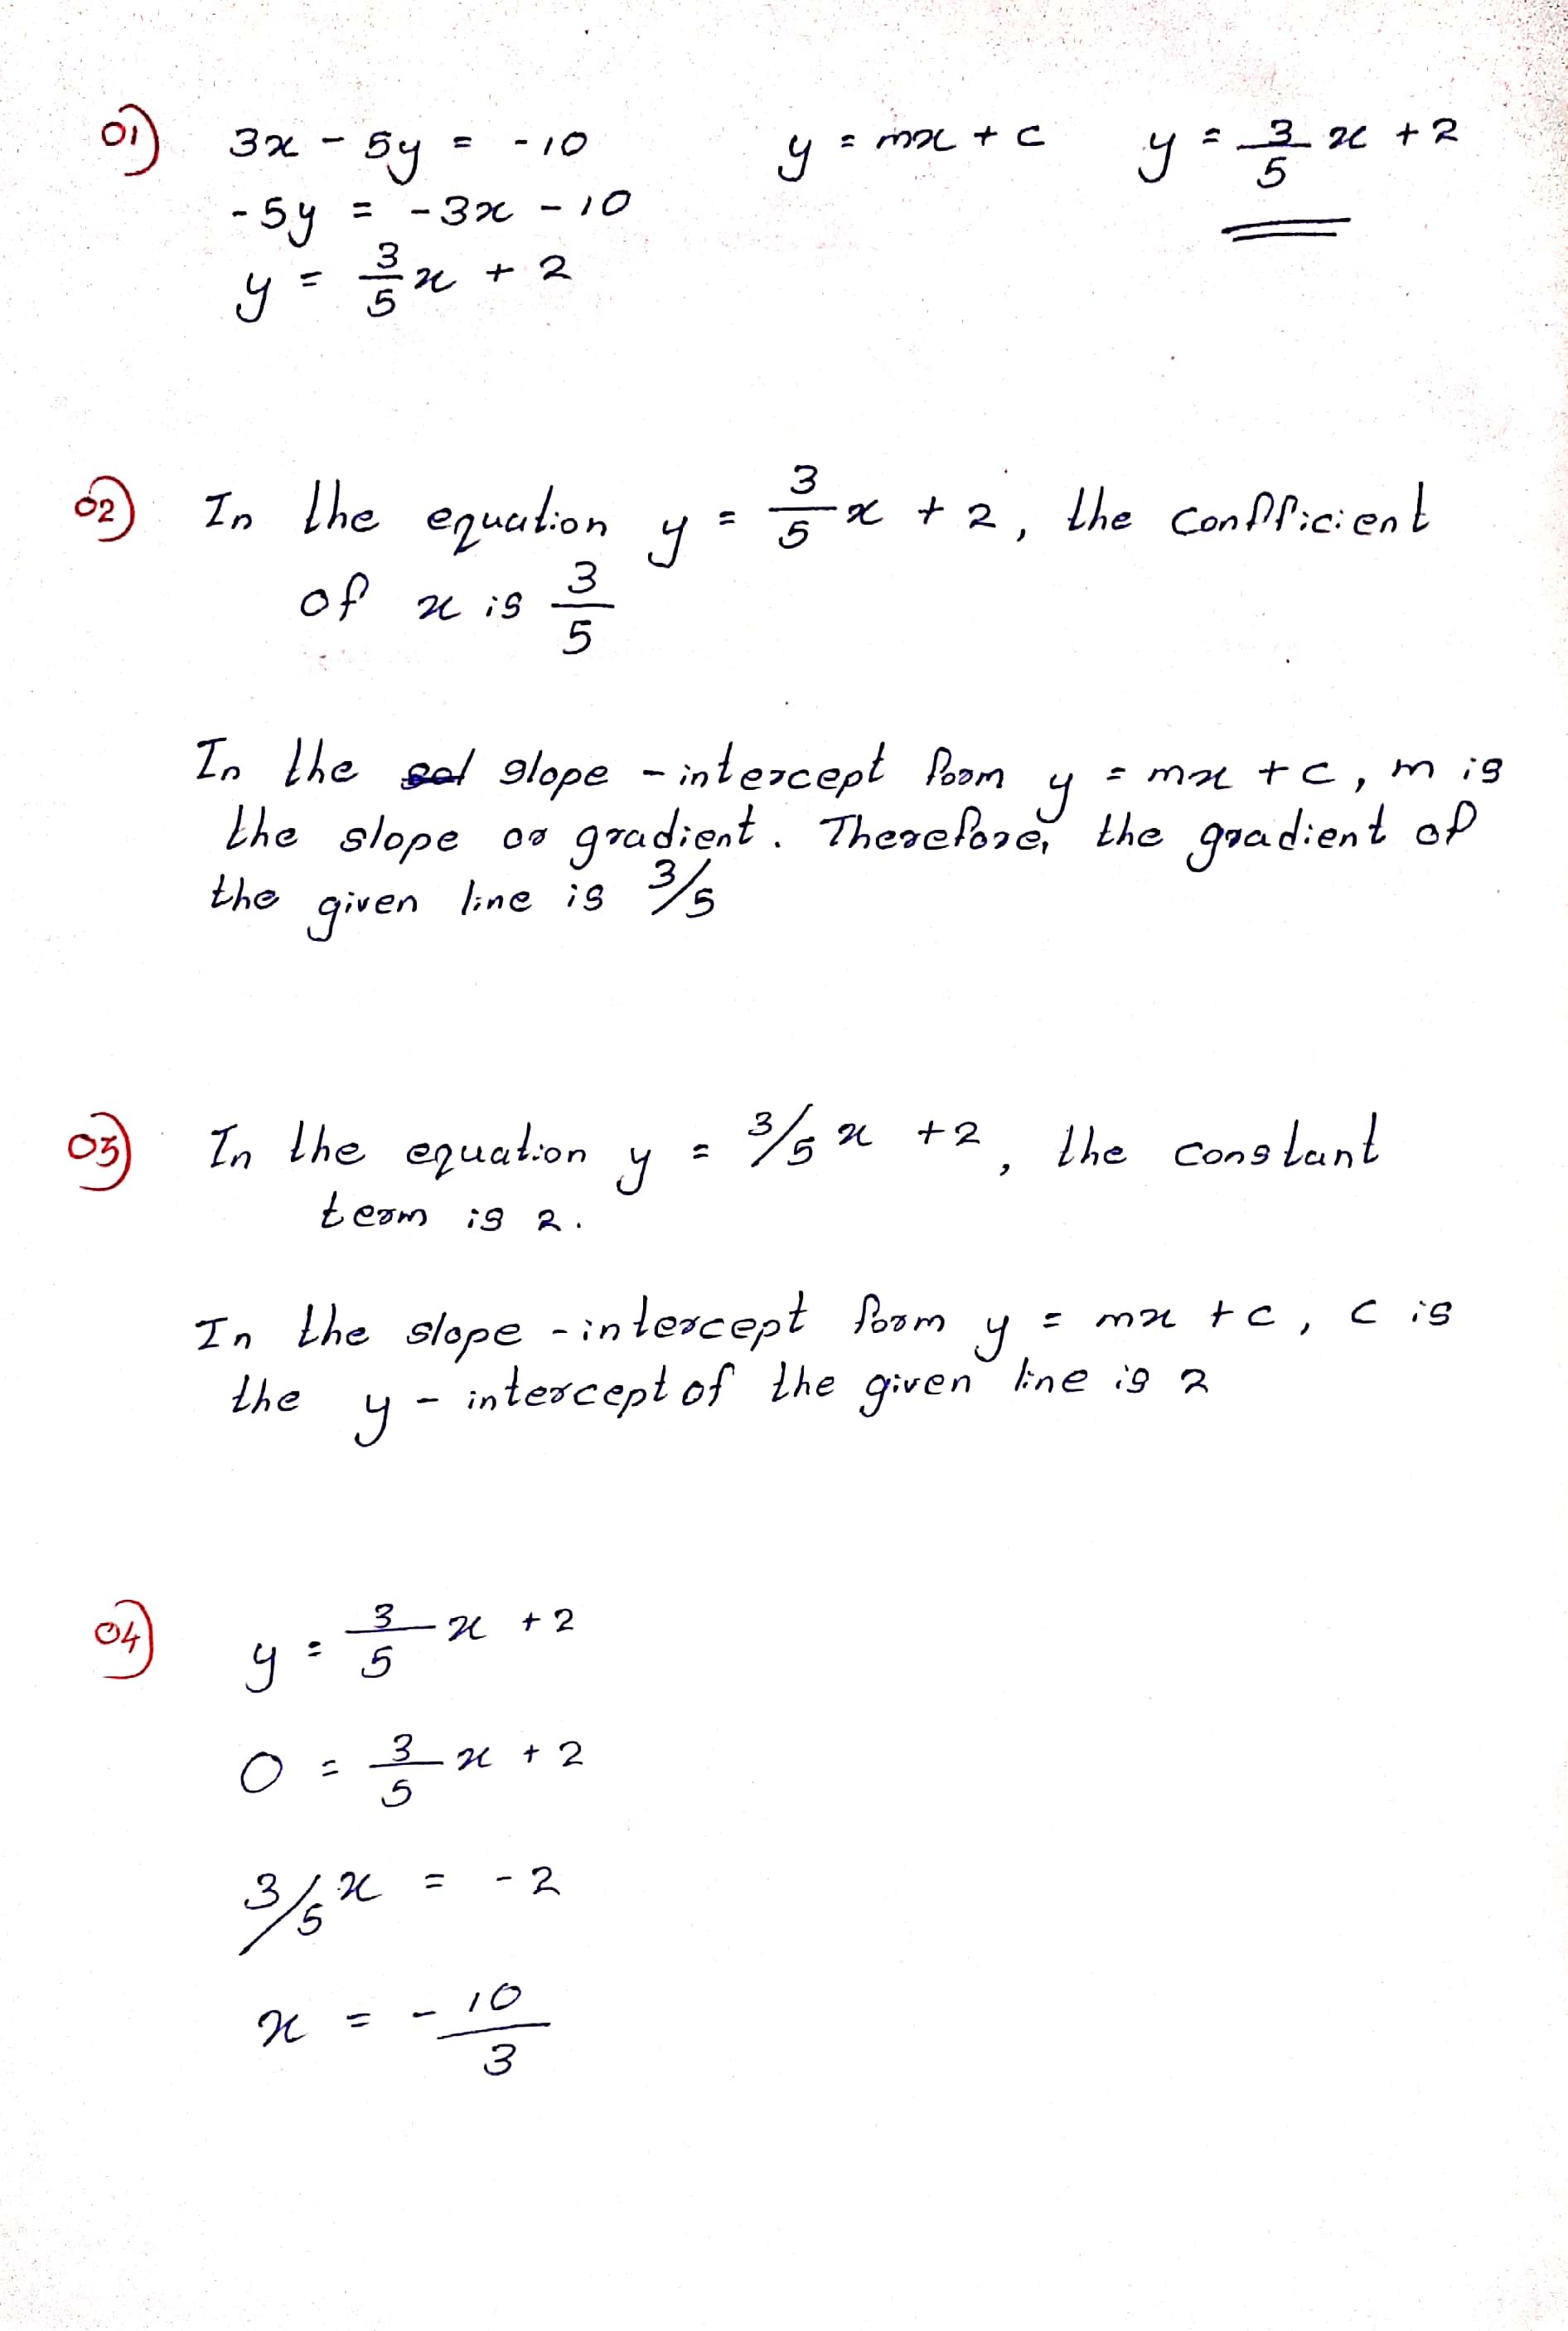 01) 3x - 5y = -10 y = mx + c y = 3/5 x + 2
-5y = -3x - 10
y = 3/5 x + 2
02) In the equation y = 3/5 x + 2, the confficient
of x is 3/5
In the sel slope - intercept form y = mx + c, m is
the slope or gradient. Therefore, the gradient of
the given line is 3/5
03) In the equation y = 3/5 x + 2, the constant
term is 2.
In the slope - intercept form y = mx + c, c is
the y - intercept of the given line is 2
04) y = 3/5 x + 2
0 = 3/5 x + 2
3/5 x = -2
x = - 10/3